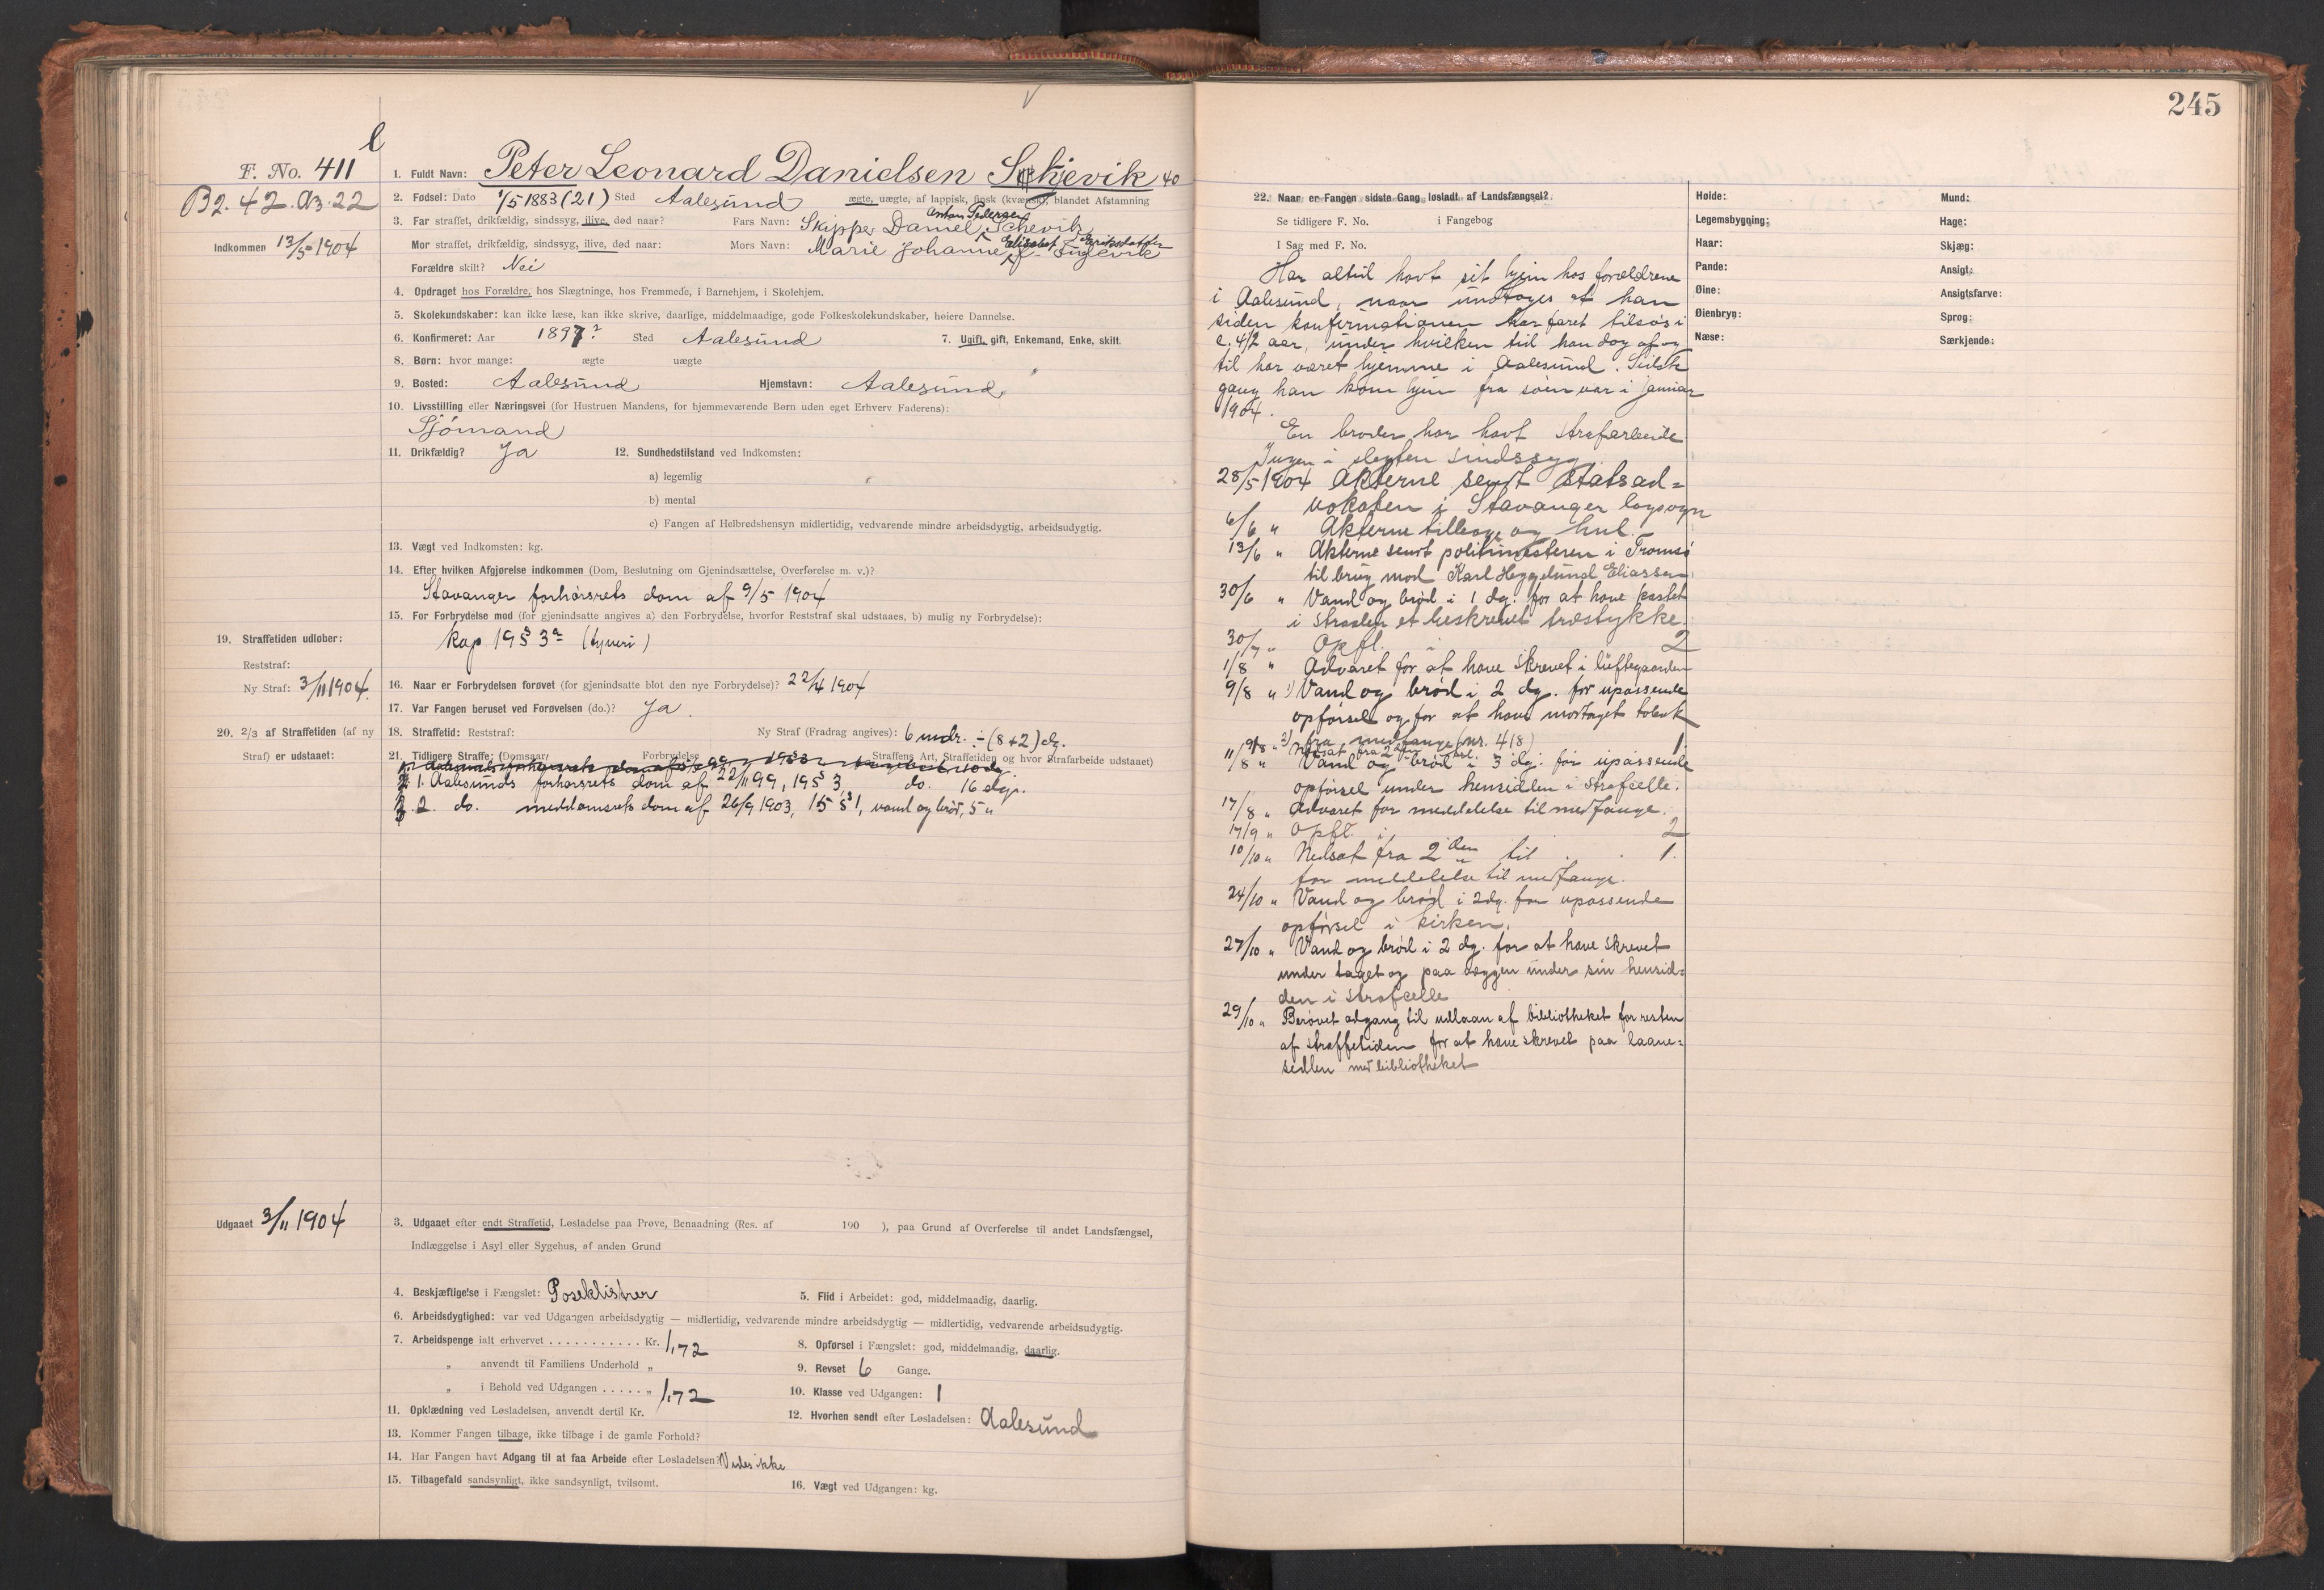 245
l
F. No. 411
B2. 42. A3. 22
Indkommen 13/5 1904
1. Fuldt Navn: Peter Leonard Danielsen Schjevik 40
2. Fødsel: Dato 1/5 1883 (21) Sted Aalesund ægte, uægte, af lappisk, finsk (kvænsk), blandet Afstamning
Anton Pedersen
3. Far straffet, drikfældig, sindssyg, ilive, død naar? Fars Navn: Skipper Daniel Schevik
Elisabet Eriksdatter
Mor straffet, drikfældig, sindssyg, ilive, død naar: Mors Navn: Marie Johanne
Forældre skilt? Nei
4. Opdraget hos Forældre, hos Slægtninge, hos Fremmede, i Barnehjem, i Skolehjem.
5. Skolekundskaber: kan ikke læse, kan ikke skrive, daarlige, middelmaadige, gode Folkeskolekundskaber, høiere Dannelse.
6. Konfirmeret: Aar 1897? Sted Aalesund 7. Ugift, gift, Enkemand, Enke, skilt.
8. Børn: hvor mange: ægte uægte
9. Bosted: Aalesund Hjemstavn: Aalesund
10. Livsstilling eller Næringsvei (for Hustruen Mandens, for hjemmeværende Børn uden eget Erhverv Faderens):
Sjømand
11. Drikfældig? Ja 12. Sundhedstilstand ved Indkomsten:
a) legemlig
b) mental
c) Fangen af Helbredshensyn midlertidig, vedvarende mindre arbeidsdygtig, arbeidsudygtig.
13. Vægt ved Indkomsten: kg.
14. Efter hvilken Afgjørelse indkommen (Dom, Beslutning om Gjenindsættelse, Overførelse m. v.)?
Stavanger forhørsrets dom af 9/5 1904
15. For Forbrydelse mod (for gjenindsatte angives a) den Forbrydelse, hvorfor Reststraf skal udstaaes, b) mulig ny Forbrydelse):
kap 19 § 3 a (tyveri)
19. Straffetiden udløber:
Reststraf:
Ny Straf: 3/11 1904.
16. Naar er Forbrydelsen forøvet (for gjenindsatte blot den nye Forbrydelse)? 22/4 1904
17. Var Fangen beruset ved Forøvelsen (do.)? Ja.
20. 2/3 af Straffetiden (af ny Straf) er udstaaet:
18. Straffetid: Reststraf: Ny Straf (Fradrag angives): 6 mdr. ÷ (8+2) dg.
21. Tidligere Straffe: (Domsaar, Forbrydelse, Straffens Art, Straffetiden og hvor Strafarbeide udstaaet)
1. Aalesunds forhørsrets dom af 22/11 99, 19 § 3 do. 16 dgr.
2. do. meddomsrets dom af 26/9 1903, 15 § 1, vand og brød, 5 "
Udgaaet 3/11 1904
3. Udgaaet efter endt Straffetid, Løsladelse paa Prøve, Benaadning (Res. af 190 ), paa Grund af Overførelse til andet Landsfængsel,
Indlæggelse i Asyl eller Sygehus, af anden Grund
4. Beskjæftigelse i Fængslet: Poseklistrer 5. Flid i Arbeidet: god, middelmaadig, daarlig.
6. Arbeidsdygtighed: var ved Udgangen arbeidsdygtig — midlertidig, vedvarende mindre arbeidsdygtig — midlertidig, vedvarende arbeidsudygtig.
7. Arbeidspenge ialt erhvervet . . . . . . . . . . . Kr. 1,72 8. Opførsel i Fængslet: god, middelmaadig, daarlig.
„ anvendt til Familiens Underhold „ 9. Revset 6 Gange.
„ i Behold ved Udgangen . . . . . „ 1,72 10. Klasse ved Udgangen: 1
11. Opklædning ved Løsladelsen, anvendt dertil Kr. 12. Hvorhen sendt efter Løsladelsen: Aalesund
13. Kommer Fangen tilbage, ikke tilbage i de gamle Forhold?
14. Har Fangen havt Adgang til at faa Arbeide efter Løsladelsen? Vides ikke
15. Tilbagefald sandsynligt, ikke sandsynligt, tvilsomt. 16. Vægt ved Udgangen: kg.
22. Naar er Fangen sidste Gang løsladt af Landsfængsel?
Se tidligere F. No. i Fangebog
I Sag med F. No.
Har altid havt sit hjem hos forældrene
i Aalesund, naar undtages at han
siden konfirmationen har faret tilsøs i
c. 4 1/2 aar, under hvilken tid han dog af og
til har været hjemme i Aalesund. Sidste
gang han kom hjem fra søen var i januar
1904.
En broder har havt strafarbeide
Ingen i slegten sindssyg.
28/5 1904 Akterne sendt Statsad=
vokaten i Stavanger lagsogn
6/6 " Akterne tilbage og hul.
13/6 " Akterne sendt politimesteren i Tromsø
til brug mod Karl Heggelund Eliassen
30/6 " Vand og brød i 1 dg. for at have kastet
i Straalen et beskrevet træstykke.
30/7 " Opfl. i 2
1/8 " Advaret for at have skrevet i luftegaarden
9/8 " 1) Vand og brød i 2 dg. for upassende
opførsel og for at have modtaget tobak
fra medfange (nr. 418)
9/8 " 2) Nedsat fra 2den til 1.
11/8 " Vand og brød i 3 dg. for upassende
opførsel under hensidden i strafcelle.
17/8 " Advaret for meddelelse til medfange.
17/9 " Opfl. i 2
10/10 " Nedsat fra 2den til . . 1.
for meddelelse til medfange.
24/10 " Vand og brød i 2 dg. for upassende
opførsel i kirken.
27/10 " Vand og brød i 2 dg. for at have skrevet
under taget og paa væggen under sin hensid=
den i strafcelle
29/10 " Berøvet adgang til udlaan af bibliotheket for resten
af straffetiden for at have skrevet paa laane=
sedlen med bibliotheket
Høide: Mund:
Legemsbygning: Hage:
Haar: Skjæg:
Pande: Ansigt:
Øine: Ansigtsfarve:
Øienbryn: Sprog:
Næse: Særkjende: